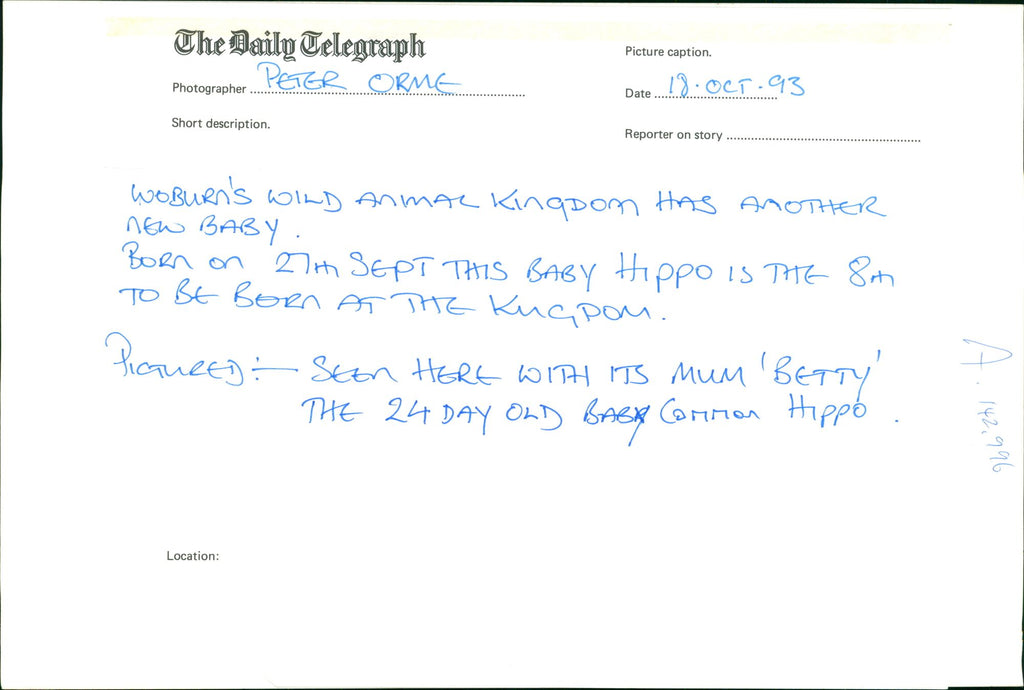 The Daily Telegraph
Picture caption.
Photographer PETER ORME
Date 18.OCT.93
Short description.
Reporter on story
WOBURN'S WILD ANIMAL KINGDOM HAS ANOTHER
NEW BABY.
BORN ON 27TH SEPT THIS BABY HIPPO IS THE 8TH
TO BE BORN AT THE KINGDOM.
PICTURED:- SEEN HERE WITH ITS MUM 'BETTY'
THE 24 DAY OLD BABY COMMON HIPPO.
A.142.996
Location: